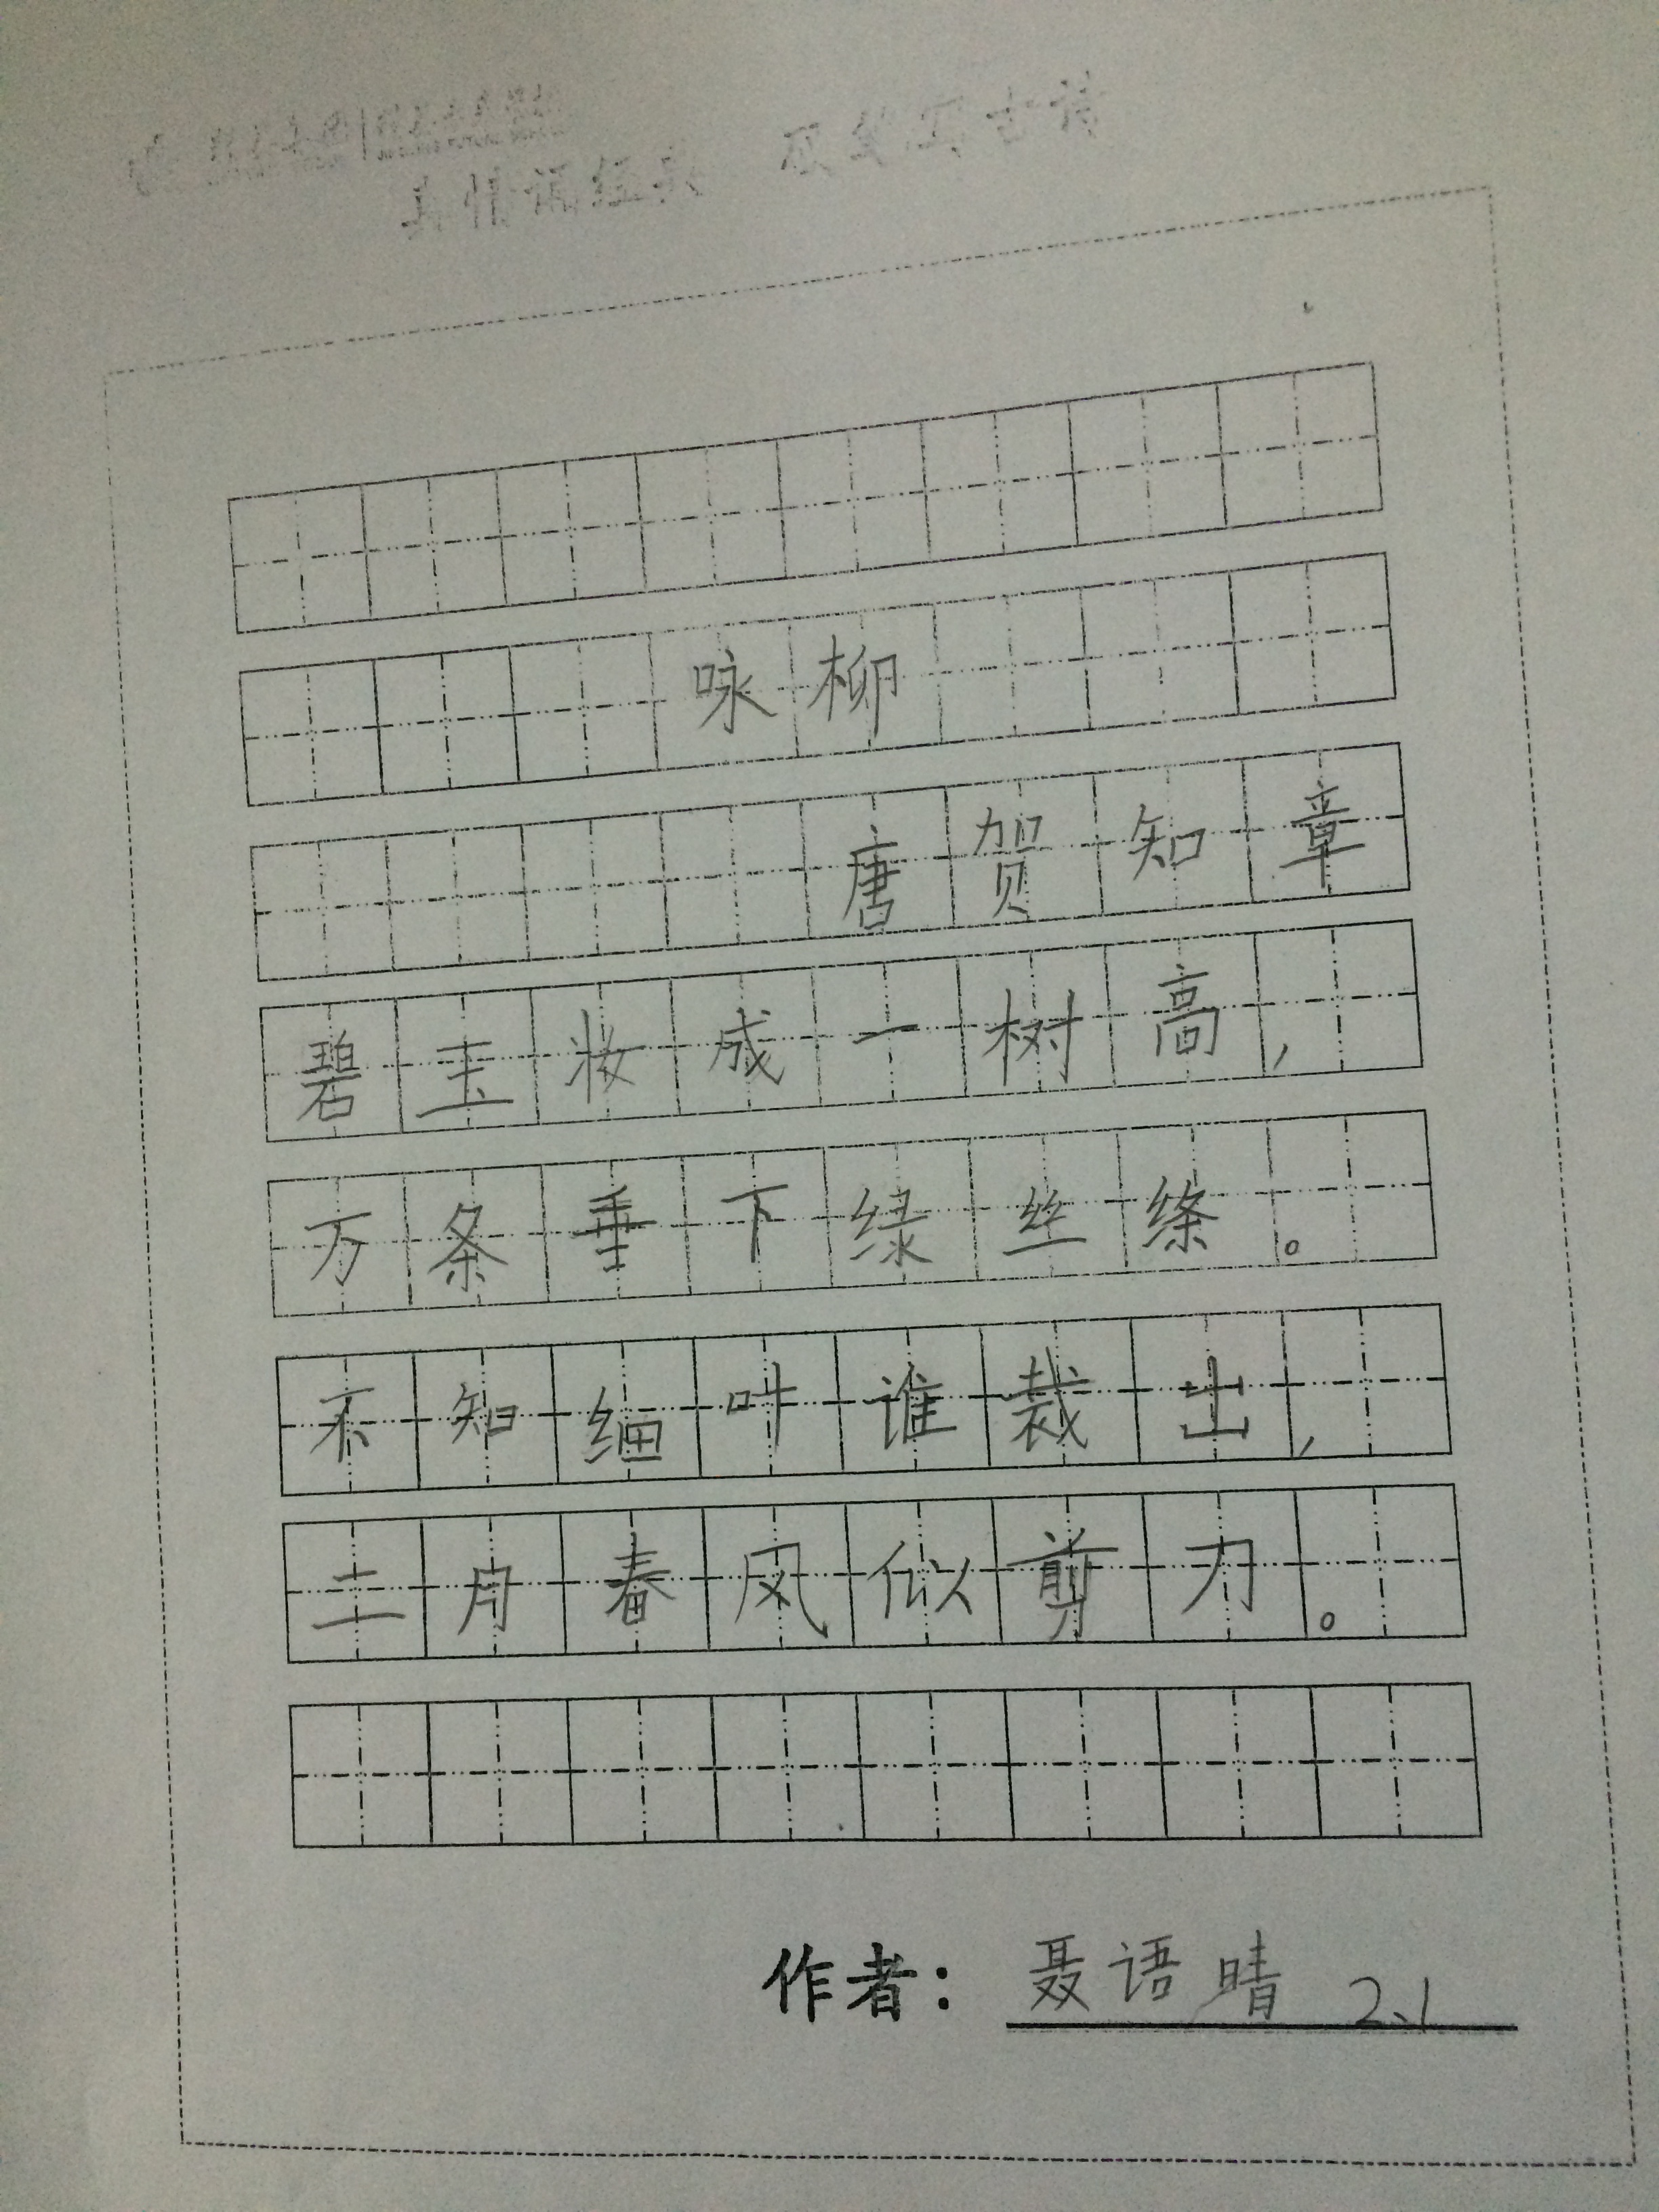 咏柳
唐贺知章
碧玉妆成一树高，
万条垂下绿丝绦。
不知细叶谁裁出，
二月春风似剪刀。
作者：聂语晴 2.1